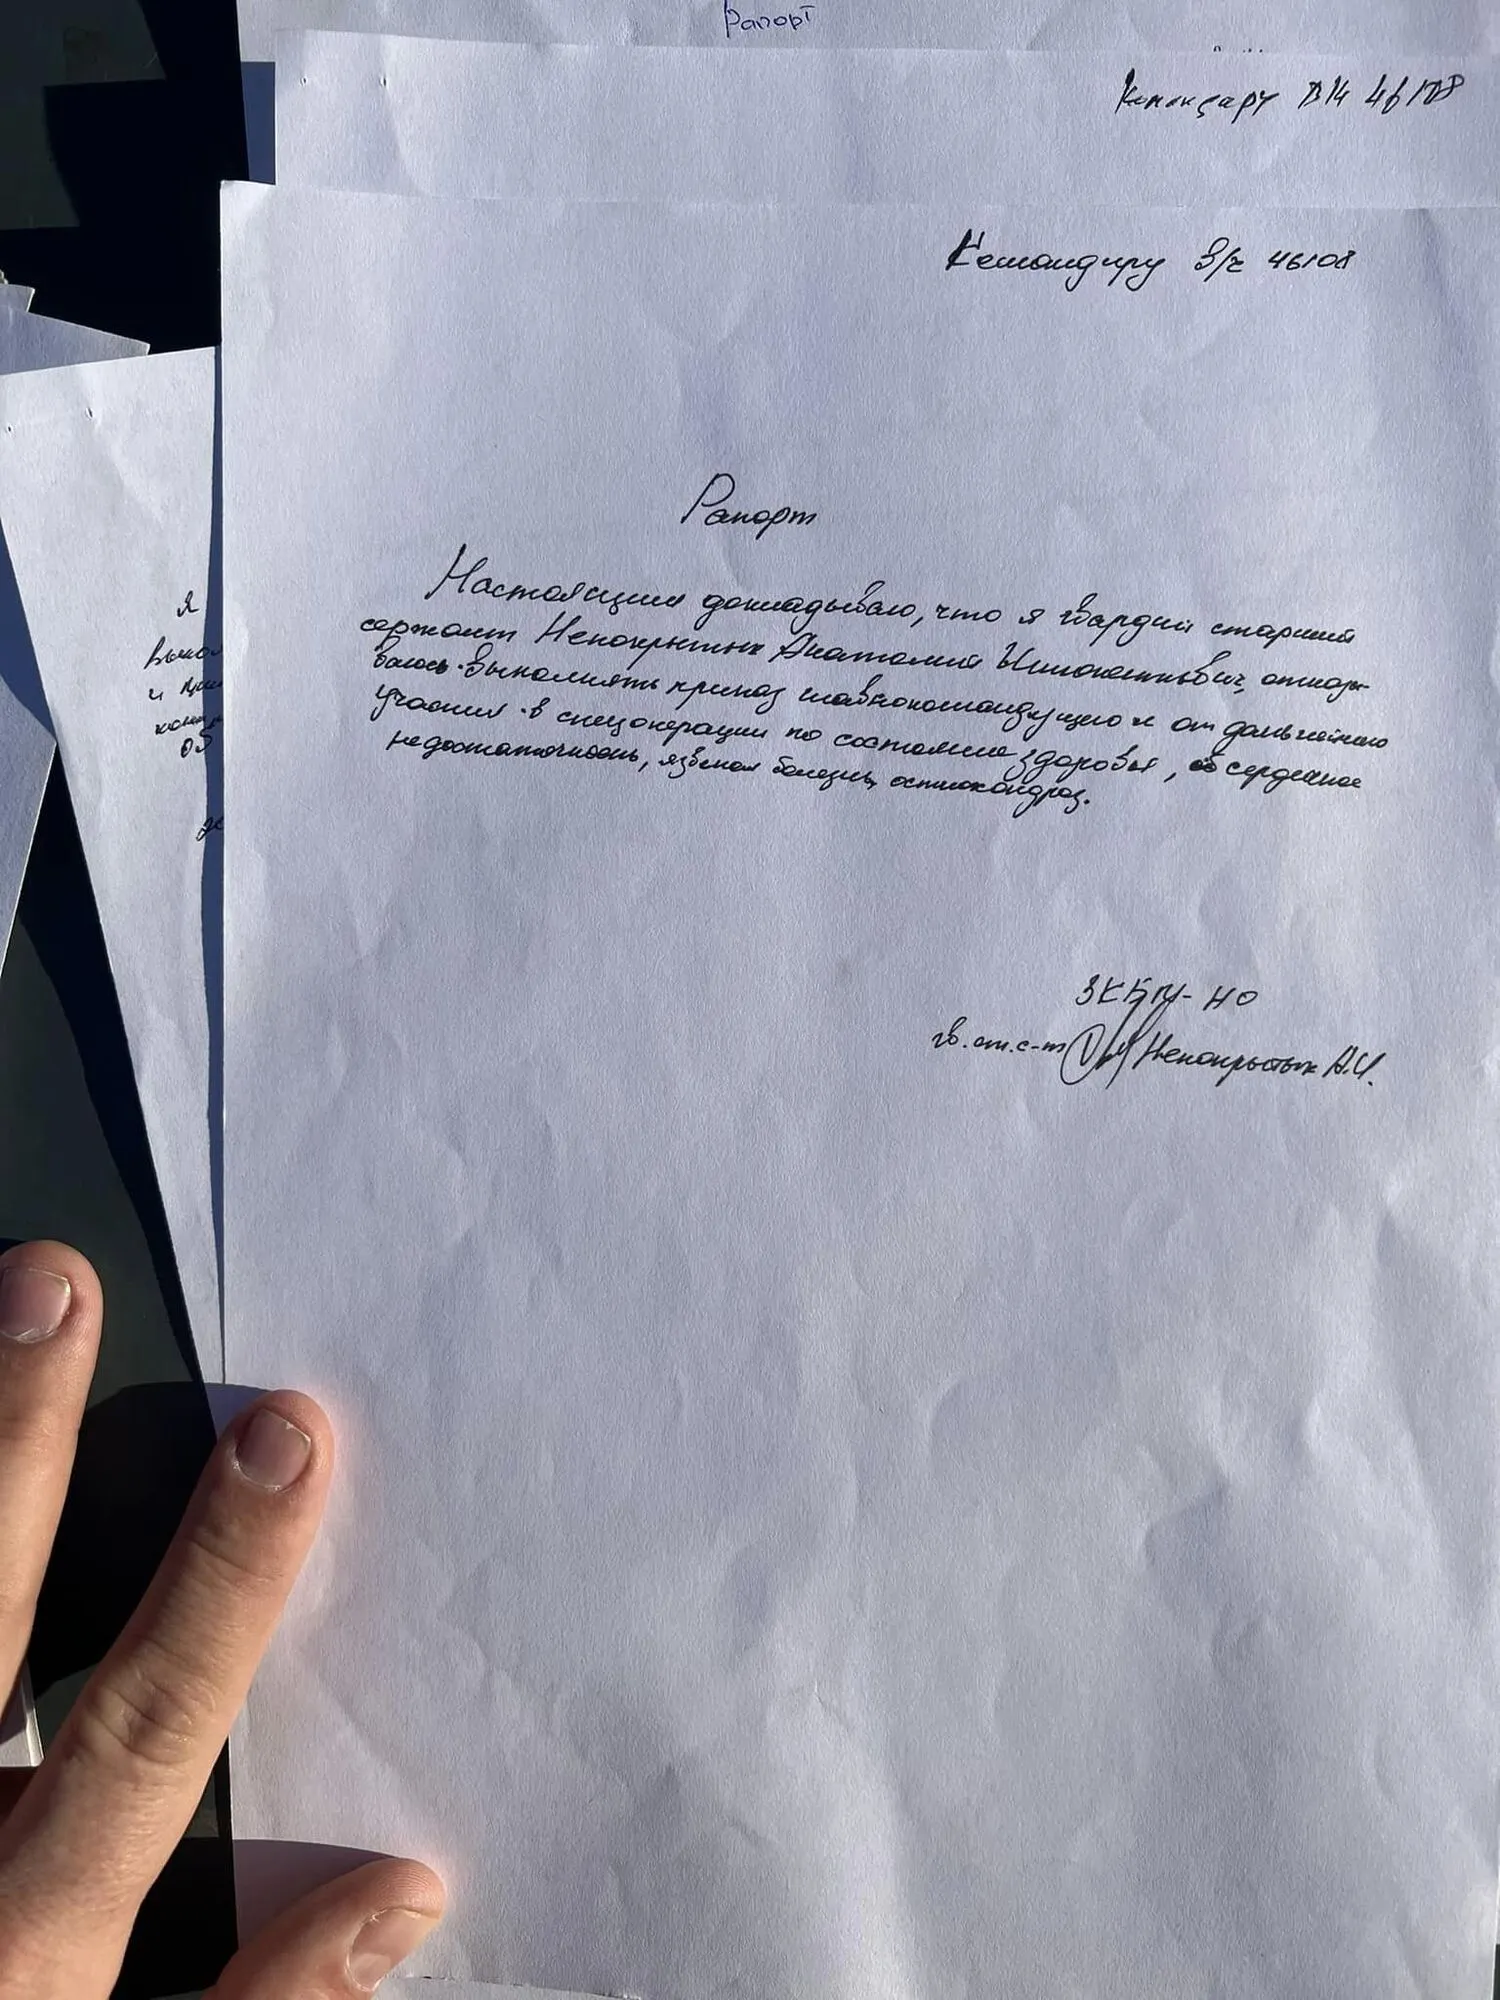 Рапорт
Командиру В/Ч 46108
Командиру в/ч 46108
Рапорт
Настоящим докладываю, что я гвардии старший
сержант Непокрытых Анатолий Иннокентьевич, отказы-
ваюсь выполнять приказ главнокомандующего и от дальнейшего
участия в спецоперации по состоянию здоровья, сердечная
недостаточность, язвенная болезнь, остиохондроз.
Я
выпол
и при
05
ЗКБМ-НО
гв. ст. с-т Непокрытых А.И.